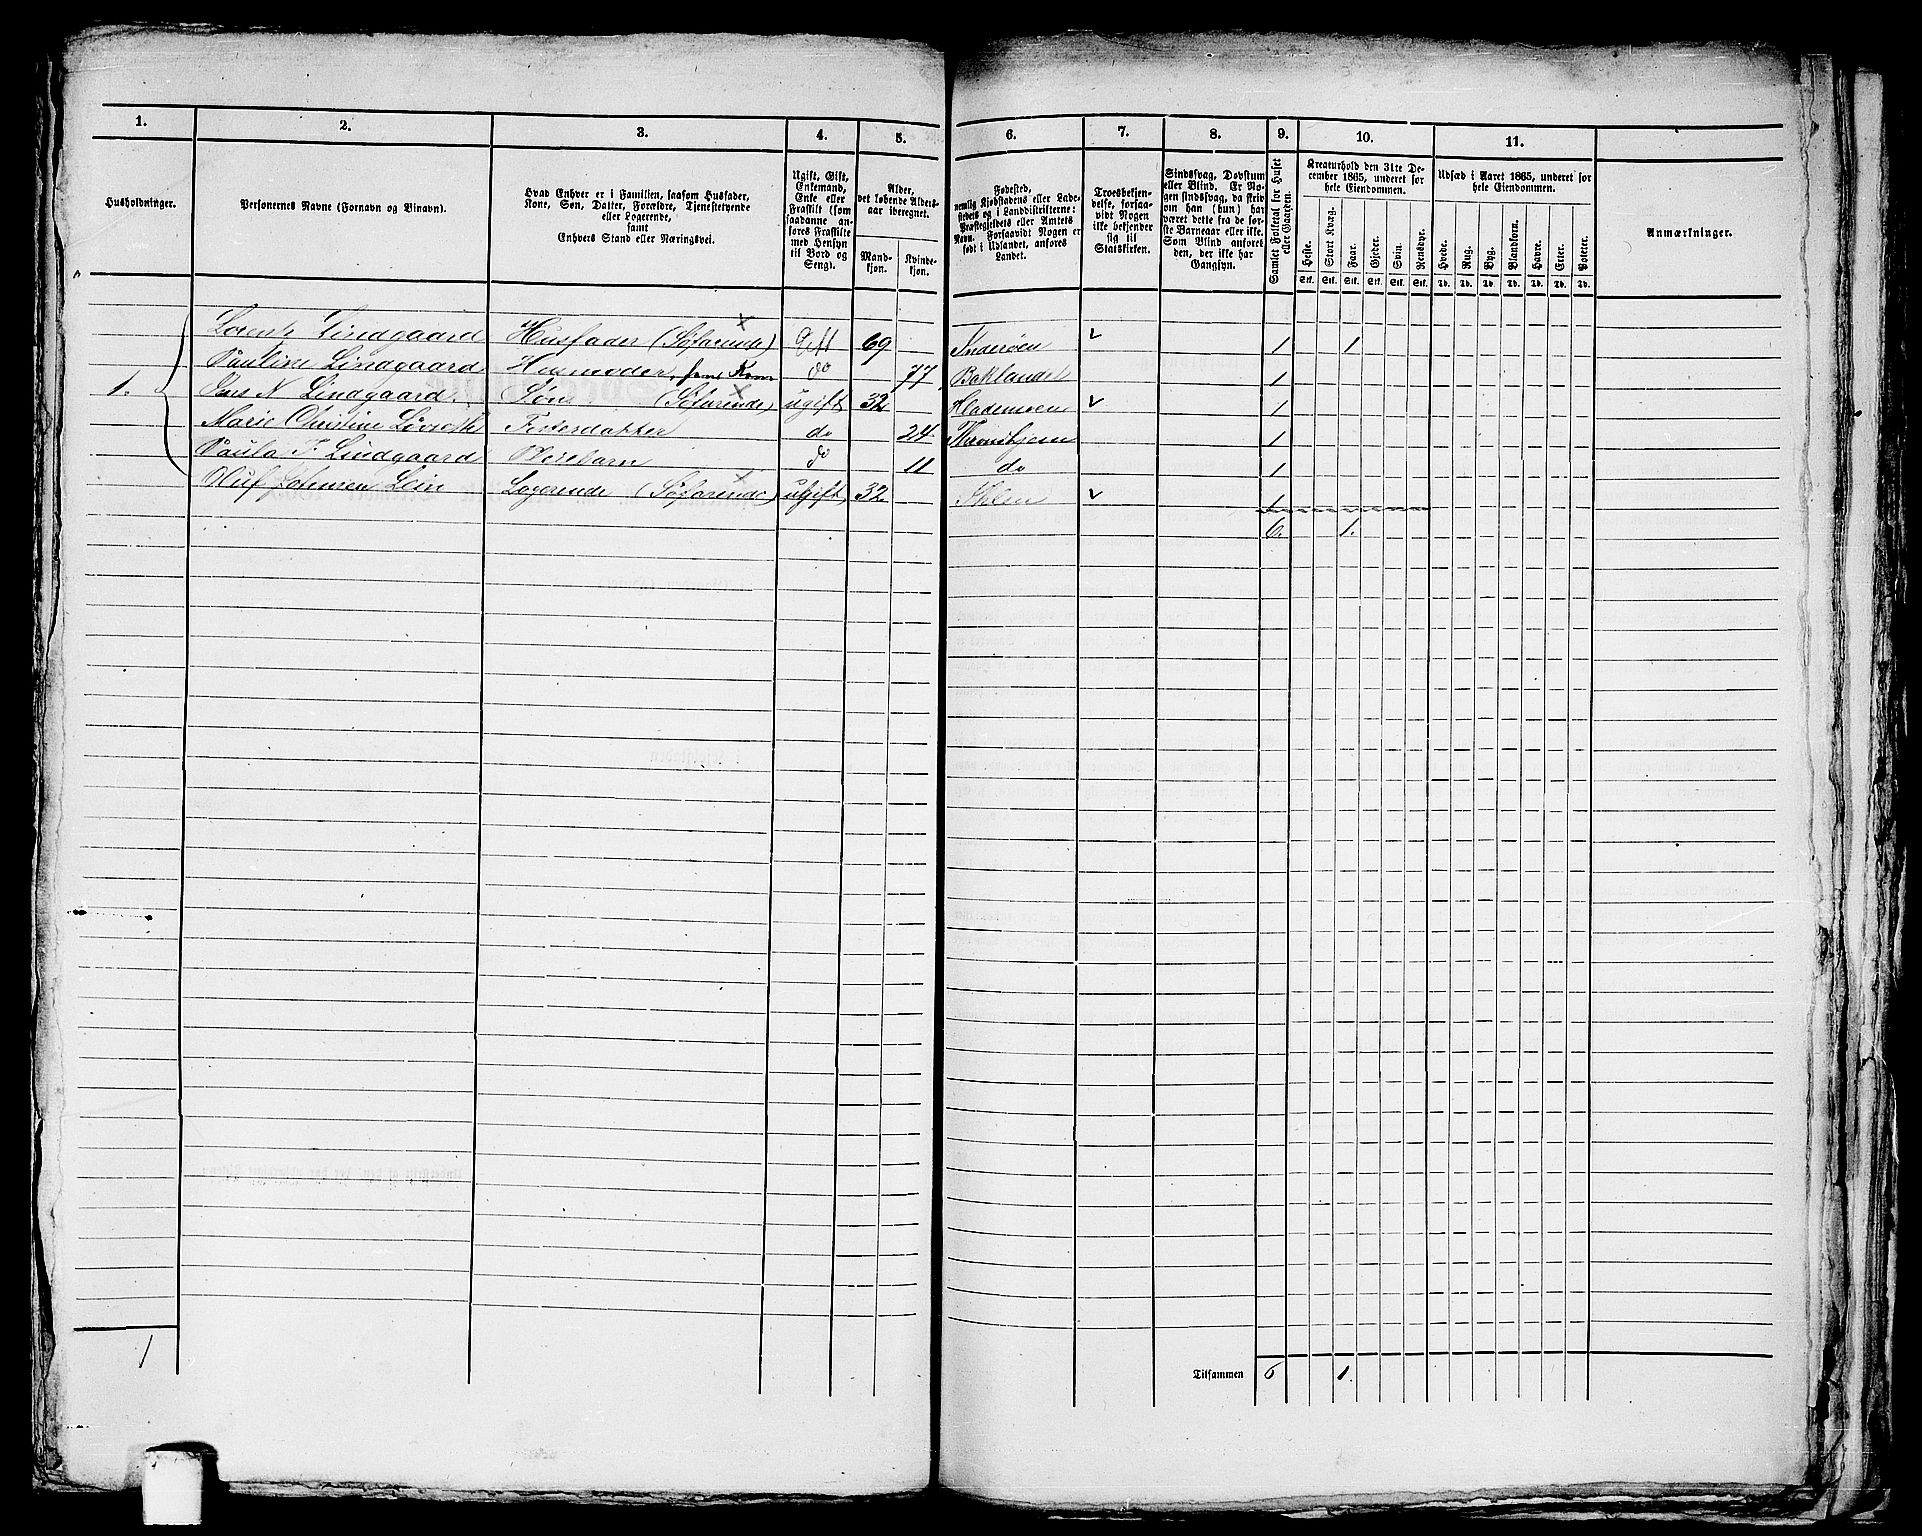 1. 2. 3. 4. 5. 6. 7. 8. 9. 10. 11.
Husholdninger.
Personernes Navne (Fornavn og Binavn).
Hvad Enhver er i Familien, saasom Husfader,
Kone, Søn, Datter, Forældre, Tjenestetyende
eller Logerende,
samt
Enhvers Stand eller Næringsvei.
Ugift, Gift,
Enkemand,
Enke eller
Fraskilt (som
saadanne an-
føres Fraskilte
med Hensyn
til Bord og
Seng).
Alder,
det løbende Alders-
aar iberegnet.
Mand-
kjøn.
Kvinde-
kjøn.
Fødested,
nemlig Kjøbstadens eller Lade-
stedets og i Landdistrikterne:
Præstegjeldets eller Amtets
Navn. Forsaavidt Nogen er
født i Udlandet, anføres
Landet.
Troesbekjen-
delse, forsaa-
vidt Nogen
ikke bekjender
sig til
Statskirken.
Sindssvag, Døvstum
eller Blind. Er No-
gen sindssvag, da skriv
om han (hun) har
været dette fra de før-
ste Barneaar eller ikke.
Som Blind anføres
den, der ikke har
Gangsyn.
Samlet Folketal for Huset
eller Gaarden.
Kreaturhold den 31te De-
cember 1865, underet for
hele Eiendommen.
Heste. Stort Kvæg. Faar. Gjeder. Svin. Rensdyr.
Stk. Stk. Stk. Stk. Stk. Stk.
Udsæd i Aaret 1865, underet for
hele Eiendommen.
Hvede. Rug. Byg. Blandkorn. Havre. Erter. Poteter.
Td. Td. Td. Td. Td. Td. Td.
Anmærkninger.
Lorentz Lindgaard Husfader (Søfarende) Gift 69 Inderøen 1 1
Pauline Lindgaard Husmoder, Kone do 77 Baklandet 1
1. Jens N Lindgaard Søn (Søfarende) ugift 32 Hlademoen 1
Marie Christine Fostersdatter do 24 Throndhjem 1
Paula J Lindgaard Plerebarn do 11 do 1
Oluf Johnsen Lein Logerende (Søfarende) ugift 32 1
6. 1.
1
Tilsammen 6 1.